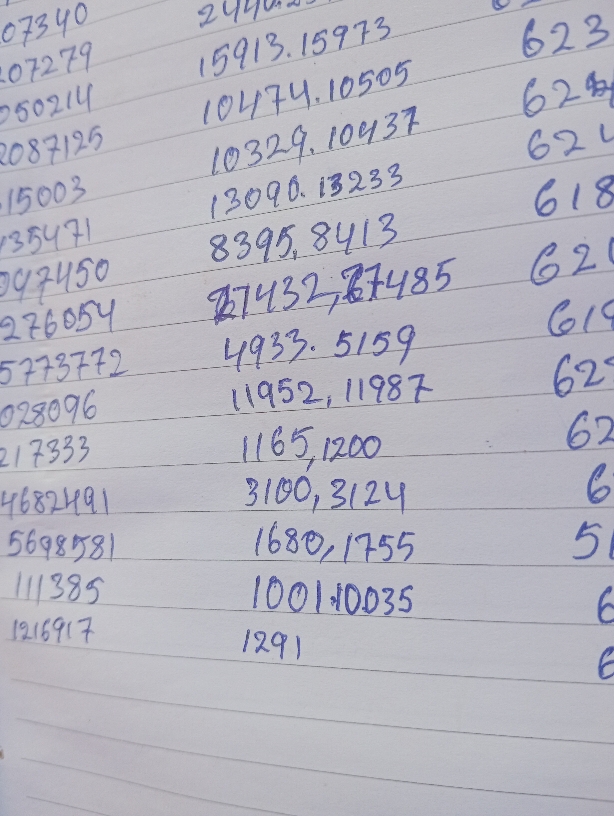 07340
207279 15913.15973 623
050214 10474.10505
2087125 10329.10437
15003 13090.13233 618
35471 8395,8413
047450 67432,67485
276054 4933.5159
5773772 11952,11987
028096 1165,1200
217333 3100,3124
4682491 1680,1755
5698581 1001.10035
111385 1291
1216917